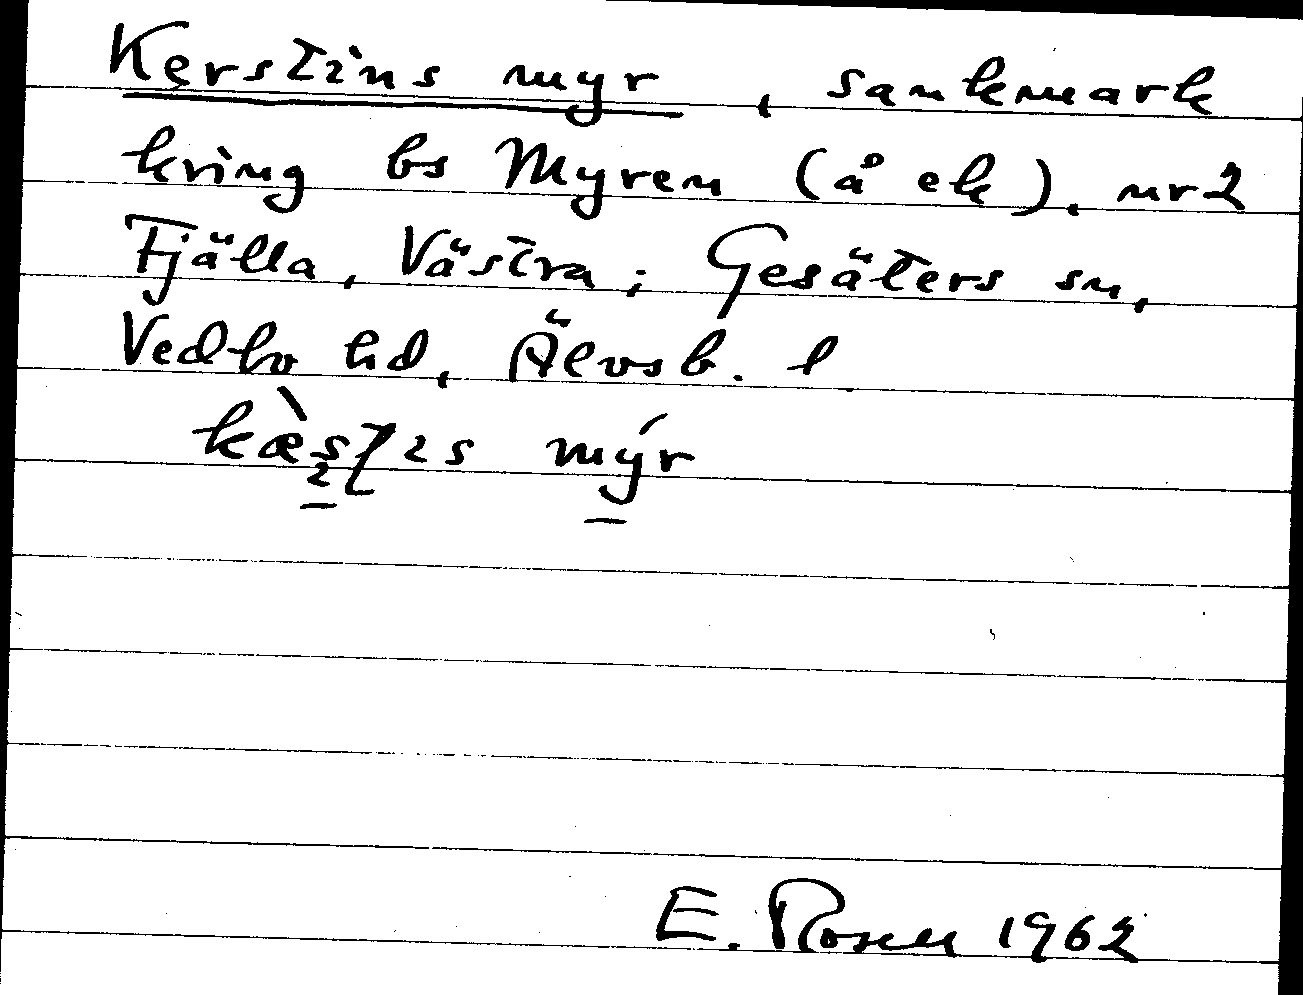 Kerstins myr, sankmark
kring bs Myren (å ek), nr 2
Fjälla, Västra; Gesäters sn,
Vedbo hd, Älvsb. l
E. Rosen 1962